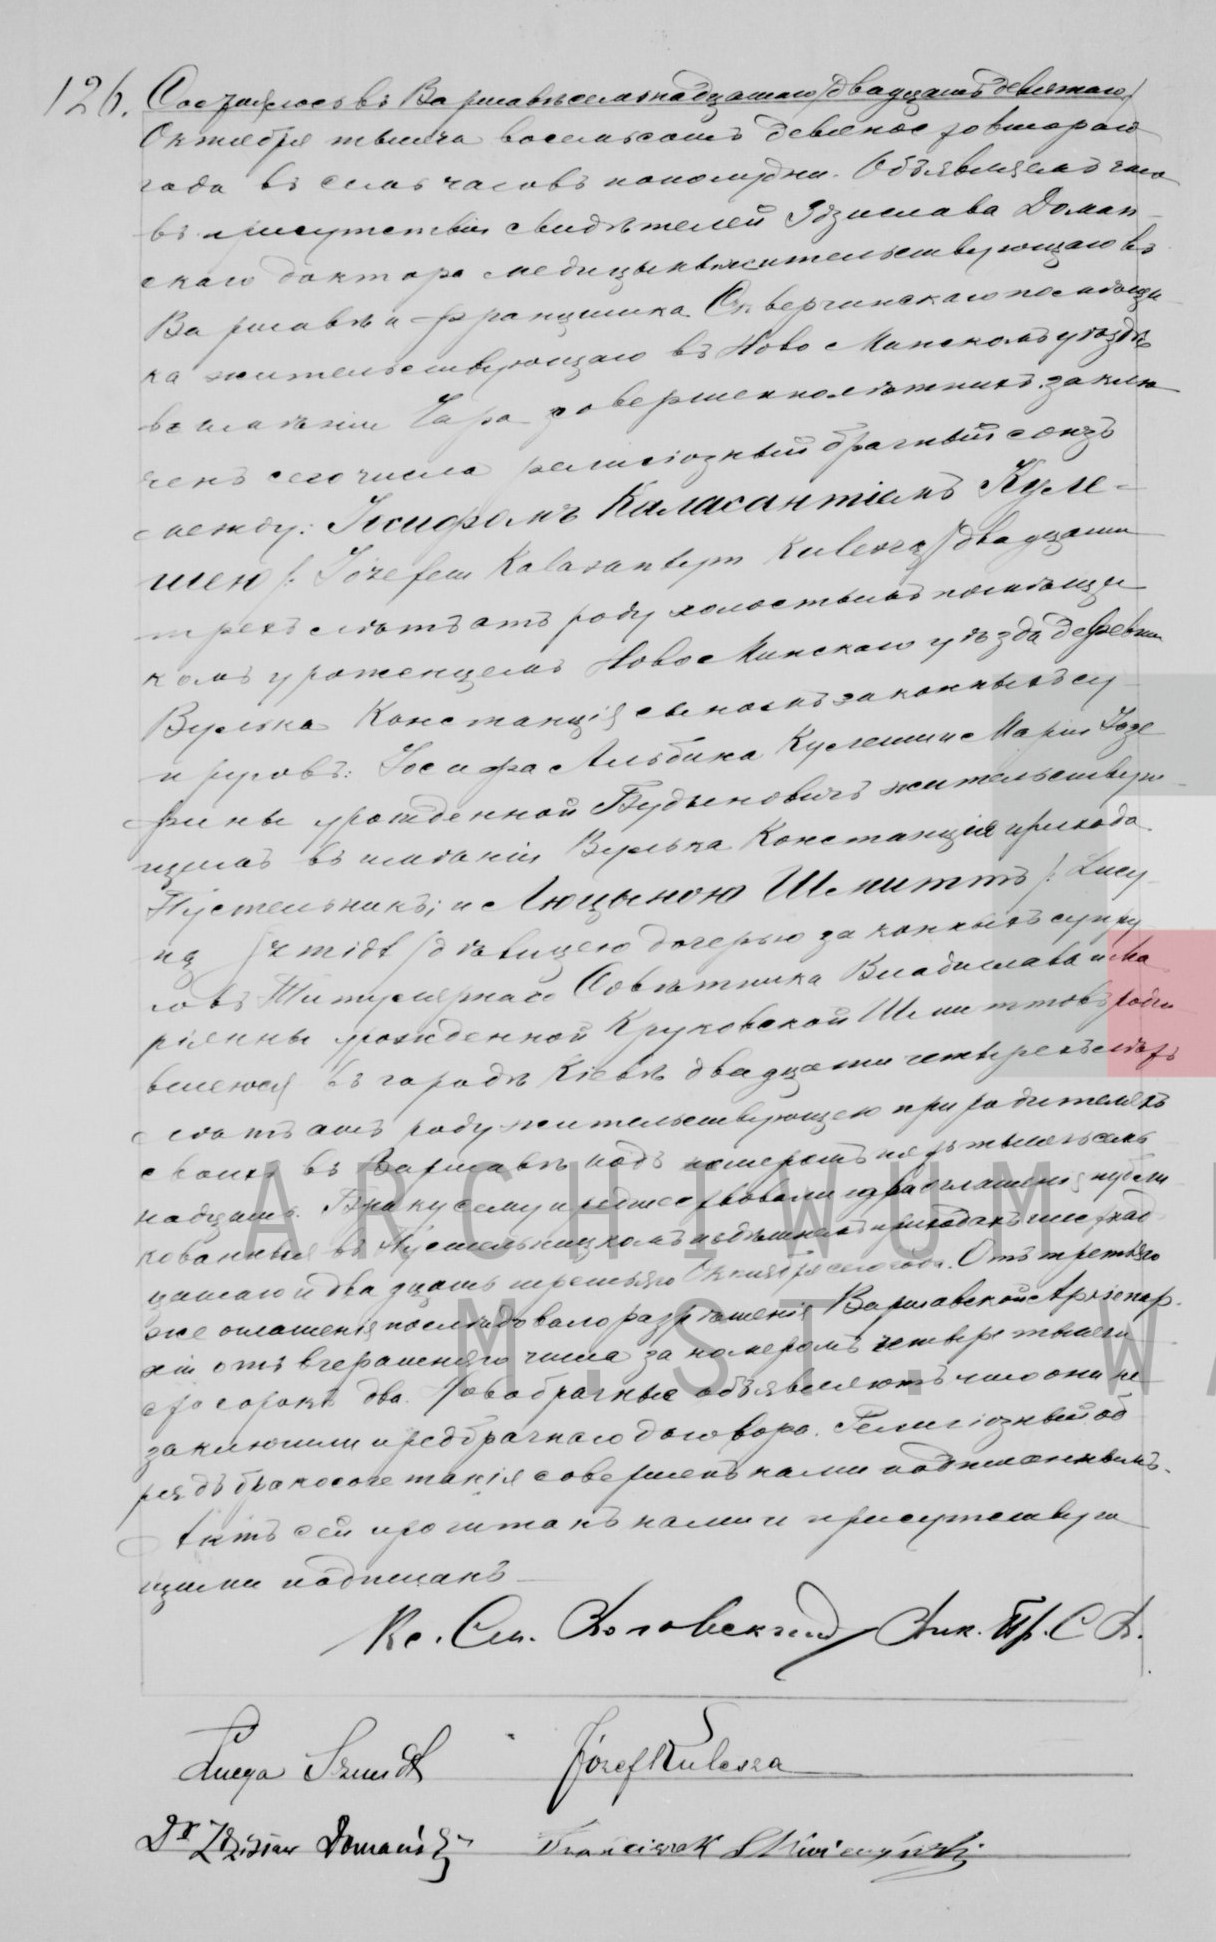 126. Состоялось въ Варшавѣ семнадцатаго /двадцать девятаго/
Октября тысяча восемьсотъ девяносто втораго
года въ семь часовъ пополудни. Объявляемъ что
въ присутствіи свидѣтелей Здзислава Доман-
скаго доктора медицины жительствующаго въ
Варшавѣ и Францишка помѣщи
ка жительствующаго въ Ново Минскомъ уѣздѣ
въ имѣніи совершеннолѣтнихъ заклю
ченъ сего числа религіозный брачный союзъ
между: Іосифомъ Каласантіемъ Куле-
шею /: Józefem Kalasantym Kuleszą/ двадцати
трехъ лѣтъ отъ роду холостымъ помѣщи
комъ уроженцемъ Ново Минскаго уѣзда деревни
Вулька Констанція сыномъ законныхъ су-
пруговъ: Іосифа Альбина Кулеши и Маріи Юзе
фины урожденной жительствую-
щимъ въ имѣніи Вулька Констанція прихода
Пустельникъ; и Люцыною Шмиттъ /: Lucy-
ną Szmidt / дѣвицею дочерью законныхъ супру
говъ Титулярнаго Совѣтника Владислава и Ма
ріянны урожденной Круковской Шмиттовъ роди
вшеюся въ городѣ Кіевѣ двадцати четырехъ лѣтъ
лѣтъ отъ роду жительствующею при родителяхъ
своихъ въ Варшавѣ подъ номеромъ тысячъ семь
надцать. Браку сему предшествовали три оглашенія публи
кованныя въ Пустельницкомъ и здѣшнемъ приходахъ
цатаго и двадцать третьяго Октября сего года. Отъ третьяго
же оглашенія послѣдовало разрѣшеніе Варшавской Архіепар-
хіи отъ вчерашняго числа за номеромъ четыре тысячи
сто сорокъ два. Новобрачные объявляютъ что они не
заключили предбрачнаго договора. Религіозный об
рядъ бракосочетанія совершенъ нами нижеподписаннымъ.
Актъ сей прочитанъ нами и присутствую
щими подписанъ
Кс. См. Вик. Пр. С. А.
Lucyna Szmidt Józef Kulesza
Dr Zdzisław Domański Franciszek Skwierczyński
ARCHIWUM
M. ST. WA